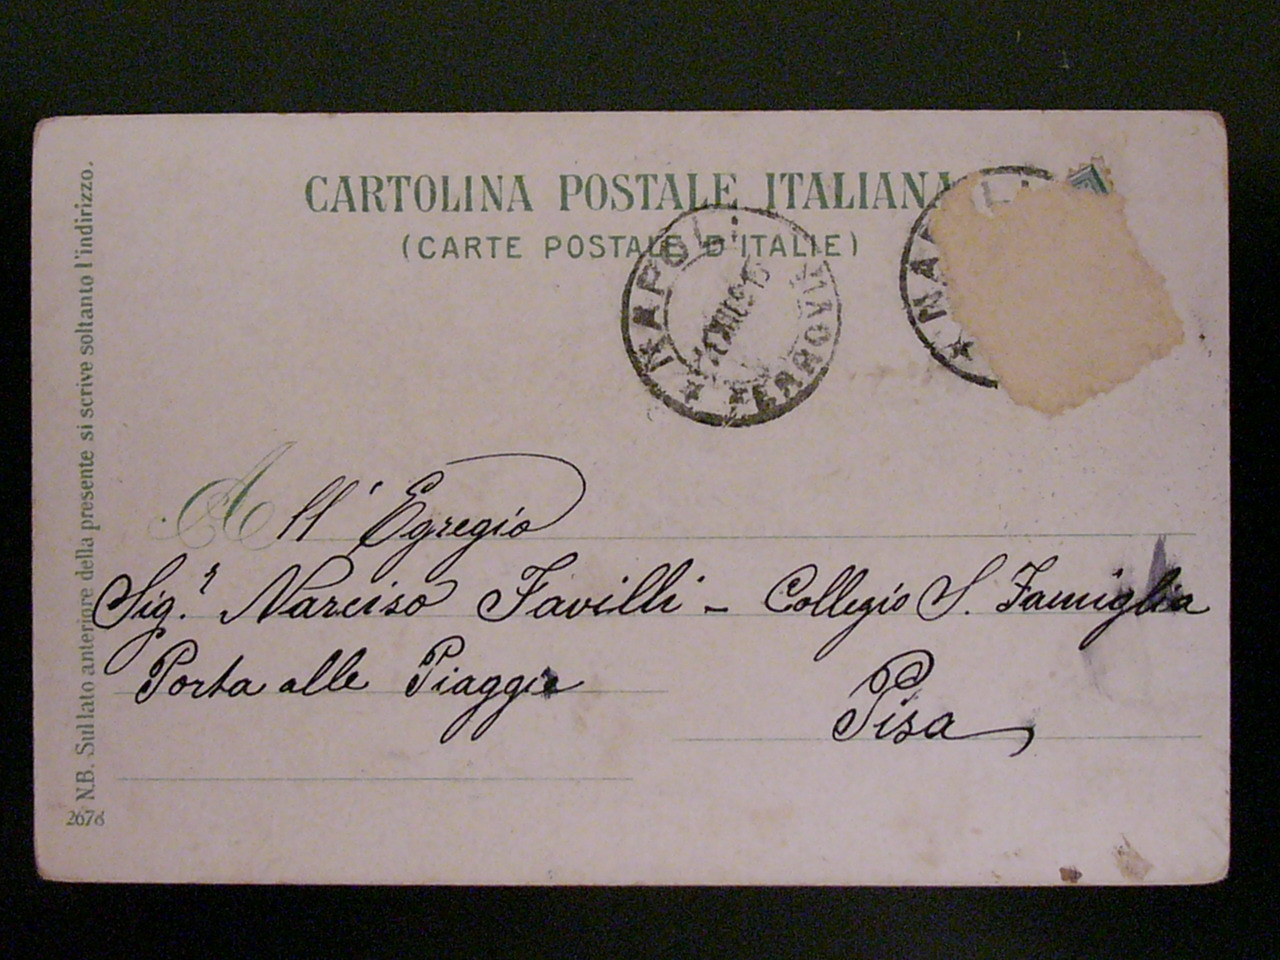 CARTOLINA POSTALE ITALIANA
(CARTE POSTALE D'ITALIE)
NAPOLI
FERROVIA
NAPOLI
All' Egregio
Sig.r Narciso Favilli - Collegio S. Famiglia
Porta alle Piagge
Pisa
N.B. Sul lato anteriore della presente si scrive soltanto l'indirizzo.
2678